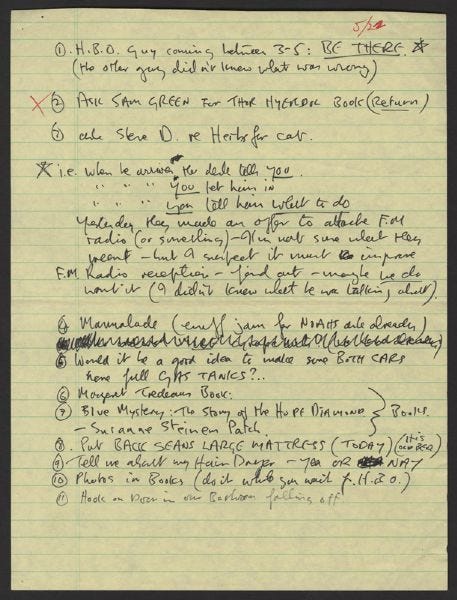 5/22
① H.B.O. Guy coming between 3-5: BE THERE *
(the other guy didn't know what was wrong)
X ② ASK SAM GREEN FOR THOR HYERDOL BOOK (Return)
③ ask Steve D. re Herbs for cat.
* i.e. when he arrives the desk tells YOU.
" " " YOU let him in
" " " YOU tell him WHAT to do
Yesterday they made an offer to attache F.M
radio (or something) – I'm not sure what they
meant – but I suspect it must improve
F.M. Radio reception – find out – maybe we do
want it (I didn't know what he was talking about).
④ Marmalade (enuff jam for NOAHS ark already)
⑤ Would it be a good idea to make sure BOTH CARS
have full GAS TANKS?..
⑥ Margaret Trudeaus Book:
⑦ Blue Mystery: The Story of the HOPE DIAMOND } BOOKS
– Susanne Steinem Patch.
⑧ PUT BACK SEANS LARGE MATTRESS (TODAY) (HIS OLD BED)
⑨ Tell me about my Hair Dryer – YEA OR NAY
⑩ Photos in Books (do it while you wait f. H.B.O.)
⑪ Hook on Door in our Bathroom falling off